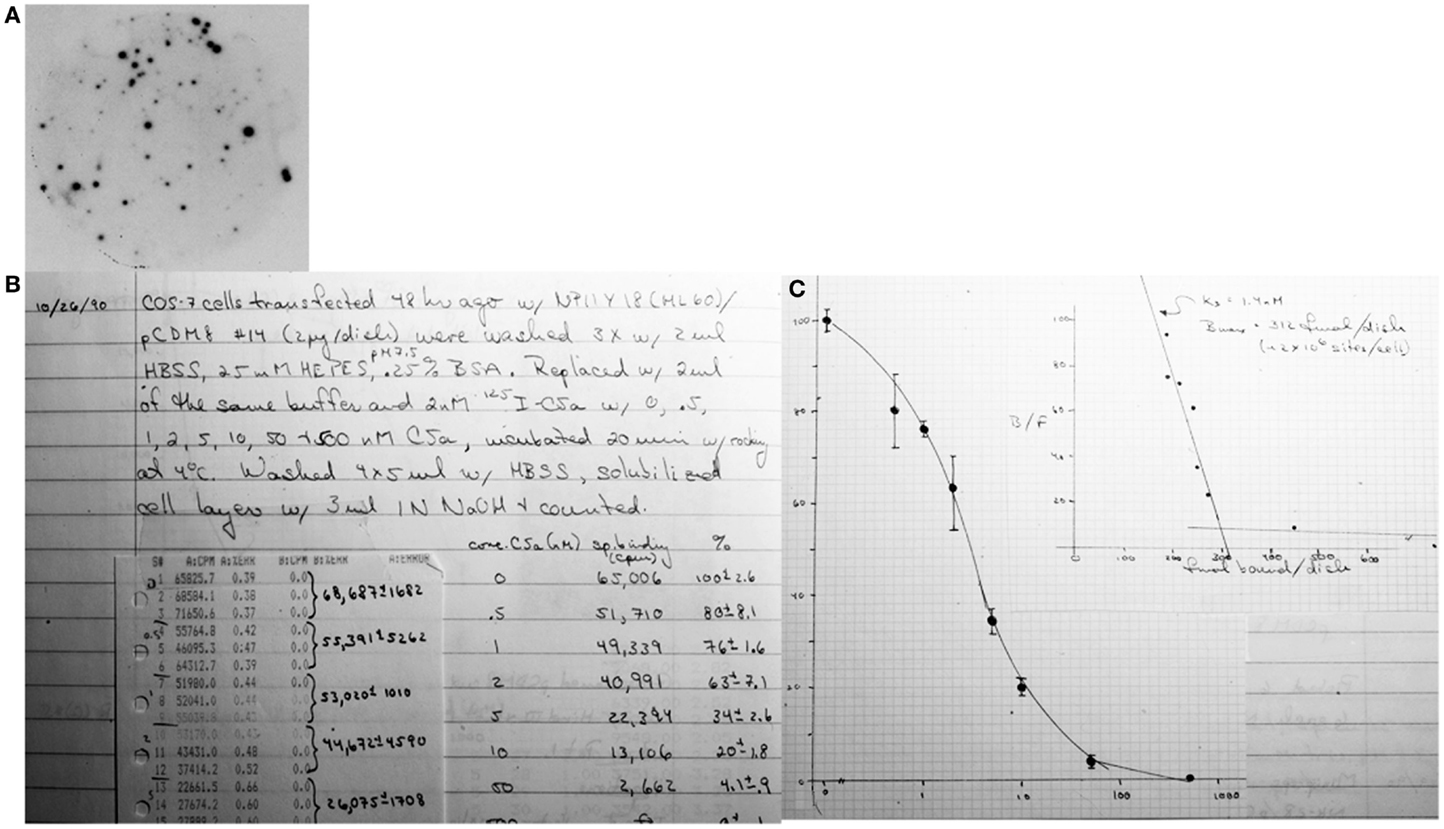 A
B
10/26/90 COS-7 cells transfected 48 hr ago w/ NPIIY18 (HL60)/
pCDM8 #14 (2µg/dish) were washed 3X w/ 2ml
HBSS, 25mM HEPES, pH7.5, .25% BSA. Replaced w/ 2ml
of the same buffer and 2nM 125I-C5a w/ 0, .5,
1, 2, 5, 10, 50 + 500 nM C5a, incubated 20 min w/ rocking
at 4°C. Washed 4x5ml w/ HBSS, solubilized
cell layers w/ 3ml 1N NaOH + counted.
conc. C5a (nM) sp. binding (cpm) %
0 65,006 100±2.6
.5 51,710 80±8.1
1 49,339 76±1.6
2 40,991 63±7.1
5 22,394 34±2.6
10 13,106 20±1.8
50 2,662 4.1±.9
S# A:CPM A:%ERR B:CPM B:%ERR A:ERROR
0 1 65825.7 0.39 0.0
2 68584.1 0.38 0.0 68,687±1682
3 71650.6 0.37 0.0
0.5 4 55764.8 0.42 0.0
5 46095.3 0.47 0.0 55,391±5262
6 64312.7 0.39 0.0
1 7 51980.0 0.44 0.0
8 52041.0 0.44 0.0 53,020±1010
9 55039.8 0.43 0.0
2 10 53170.0 0.43 0.0
11 43431.0 0.48 0.0 44,672±4590
12 37414.2 0.52 0.0
5 13 22661.5 0.66 0.0
14 27674.2 0.60 0.0 26,075±1708
15
C
100
80
60
40
20
0
0 1 10 100 1000
Kd = 1.4nM
Bmax = 312 fmol/dish
(~1.2x10⁶ sites/cell)
B/F
100
80
60
40
20
100 200 300 400 500 600
fmol bound/dish